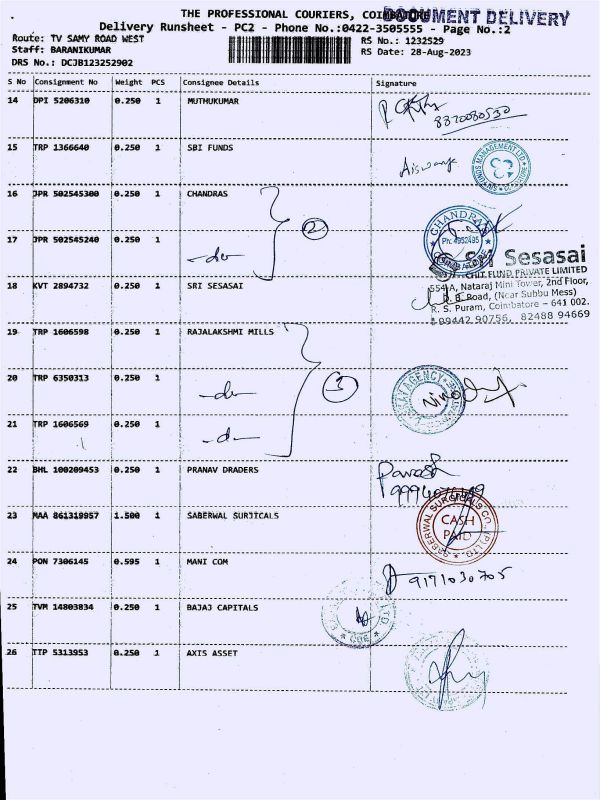 THE PROFESSIONAL COURIERS, COIMBATORE
DOCUMENT DELIVERY
Delivery Runsheet - PC2 - Phone No.:0422-3505555 - Page No.:2
Route: TV SAMY ROAD WEST
RS No.: 1232529
Staff: BARANIKUMAR
RS Date: 28-Aug-2023
DRS No.: DCJB123252902
S No Consignment No Weight PCS Consignee Details Signature
14 DPI 5206310 0.250 1 MUTHUKUMAR
8820080530
15 TRP 1366640 0.250 1 SBI FUNDS
16 JPR 502545300 0.250 1 CHANDRAS
2
CHANDRAS
Ph: 4952495
17 JPR 502545240 0.250 1 -do-
Sri Sesasai
CHIT FUND PRIVATE LIMITED
18 KVT 2894732 0.250 1 SRI SESASAI
554-A, Nataraj Mini Tower, 2nd Floor,
D. B. Road, (Near Subbu Mess)
R. S. Puram, Coimbatore – 641 002.
09442 90756, 82488 94669
19 TRP 1606598 0.250 1 RAJALAKSHMI MILLS
20 TRP 6350313 0.250 1 -do-
3
21 TRP 1606569 0.250 1 -do-
22 BHL 100209453 0.250 1 PRANAV DRADERS
23 MAA 861318957 1.500 1 SABERWAL SURJTCALS
SABERWAL SURGICALS CO. (P) LTD
CASH
PAID
24 PON 7306145 0.595 1 MANI COM
9171030705
25 TVM 14803834 0.250 1 BAJAJ CAPITALS
26 TTP 5313953 0.250 1 AXIS ASSET